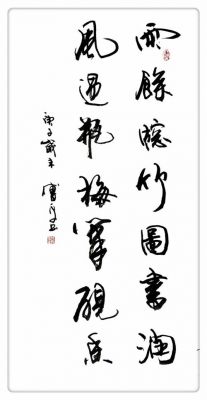 雨餘牕竹圖書潤
風過瓶梅筆硯香
庚子歲末